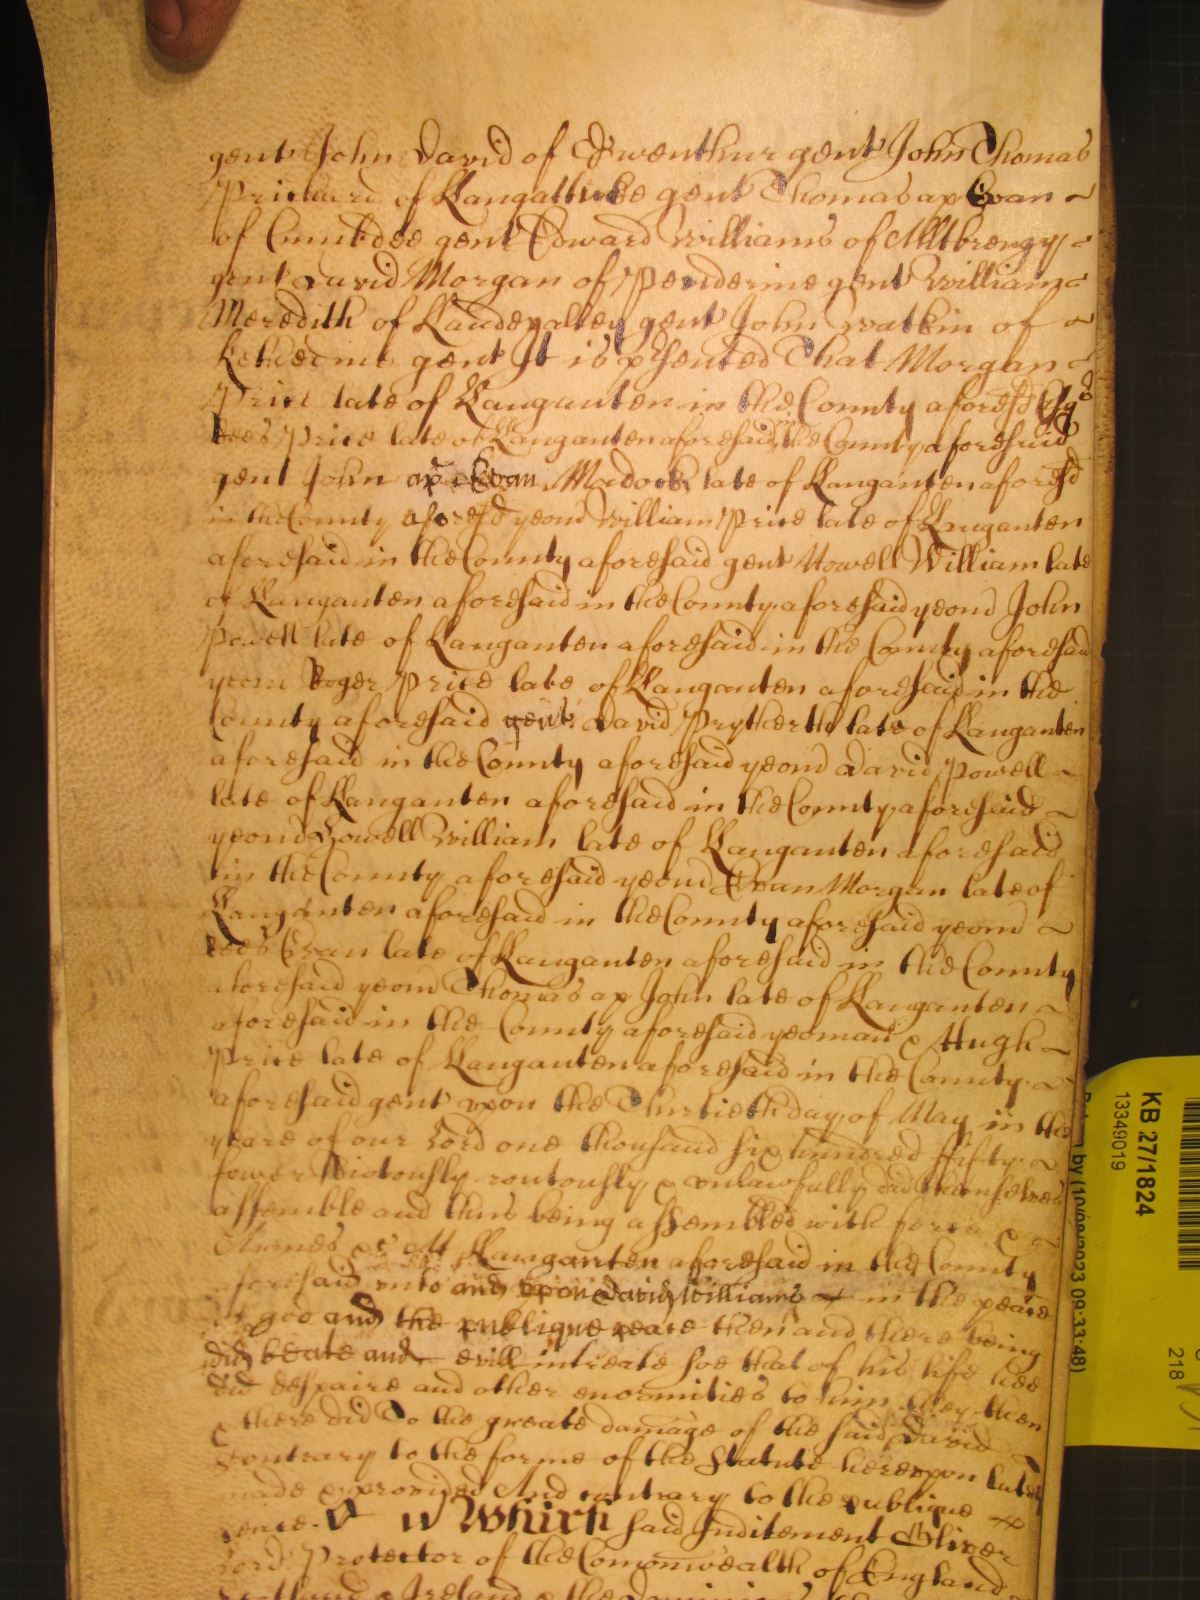 gent John David of gent John Thomas
Prichard of Llangattocke gent Thomas ap Evan
of gent Edward Williams of Alltbrengy
gent David Morgan of Penderine gent William
Meredith of Llandevalley gent John Watkin of
gent It is pr'sented That Morgan
Price late of Llanganten in the County aforesd Esqr
Rees Price late of Llanganten aforesaid in the County aforesaid
gent John ap Evan Madock late of Llanganten aforesd
in the County aforesd yeom William Price late of Llanganten
aforesaid in the County aforesaid gent Howell William late
of Llanganten aforesaid in the County aforesaid yeom John
Powell late of Llanganten aforesaid in the County aforesaid
yeom Roger Price late of Llanganten aforesaid in the
County aforesaid gent David Prytherch late of Llanganten
aforesaid in the County aforesaid yeom David Powell
late of Llanganten aforesaid in the County aforesaid
yeom Howell William late of Llanganten aforesaid
in the County aforesaid yeom Evan Morgan late of
Llanganten aforesaid in the County aforesaid yeom
Rees Evan late of Llanganten aforesaid in the County
aforesaid yeom Thomas ap John late of Llanganten
aforesaid in the County aforesaid yeoman & Hugh
Price late of Llanganten aforesaid in the County
aforesaid gent upon the Thirtieth day of May in the
yeare of our Lord one thousand six hundred fifty
fower Riotously routously & unlawfully did themselves
assemble and thus being assembled with force &
Armes &c At Llanganten aforesaid in the County
aforesaid unto and upon David Williams in the peace
of god and the publique peace then and there being
did beate and evill intreate soe that of his life hee
did despaire and other enormities to him they then
& there did To the greate damage of the said David
Contrary to the forme of the Statute hereupon lately
made & provided And contrary to the publique
peace. Which said Inditement Oliver
Lord Protector of the Comonwealth of England
Scotland & Ireland & the Dominions
KB 27/1824
13349019
by (10/08/2023 09:33:48)
218